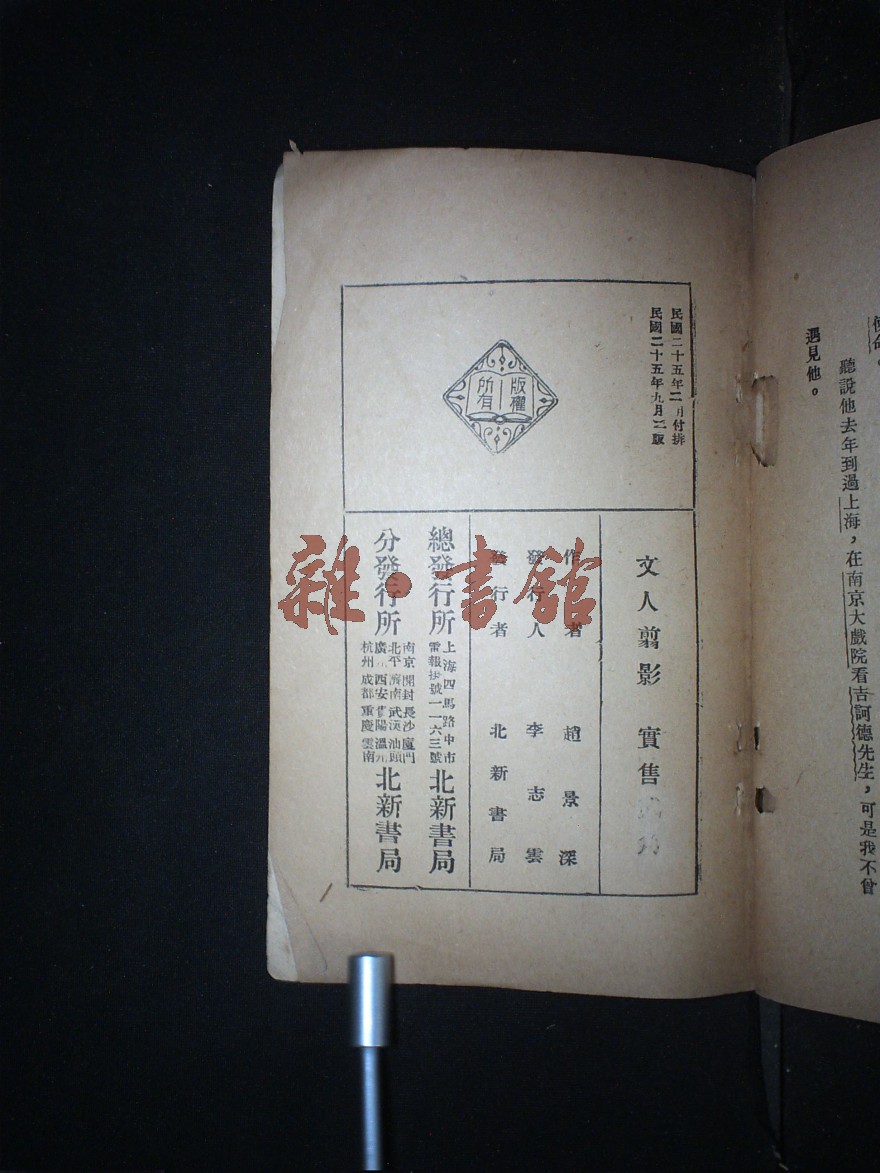 使命。
聽說他去年到過上海，在南京大戲院看吉訶德先生，可是我不曾
遇見他。
民國二十五年二月付排
民國二十五年九月二版
版權
所有
文人翦影 實售
作者 趙景深
發行人 李志雲
發行者 北新書局
總發行所 上海四馬路中市 電報掛號一一六三號 北新書局
分發行所 南京 開封 長沙 廈門 北平 濟南 武漢 汕頭 廣州 西安 貴陽 溫州 杭州 成都 重慶 雲南 北新書局
雜·書館